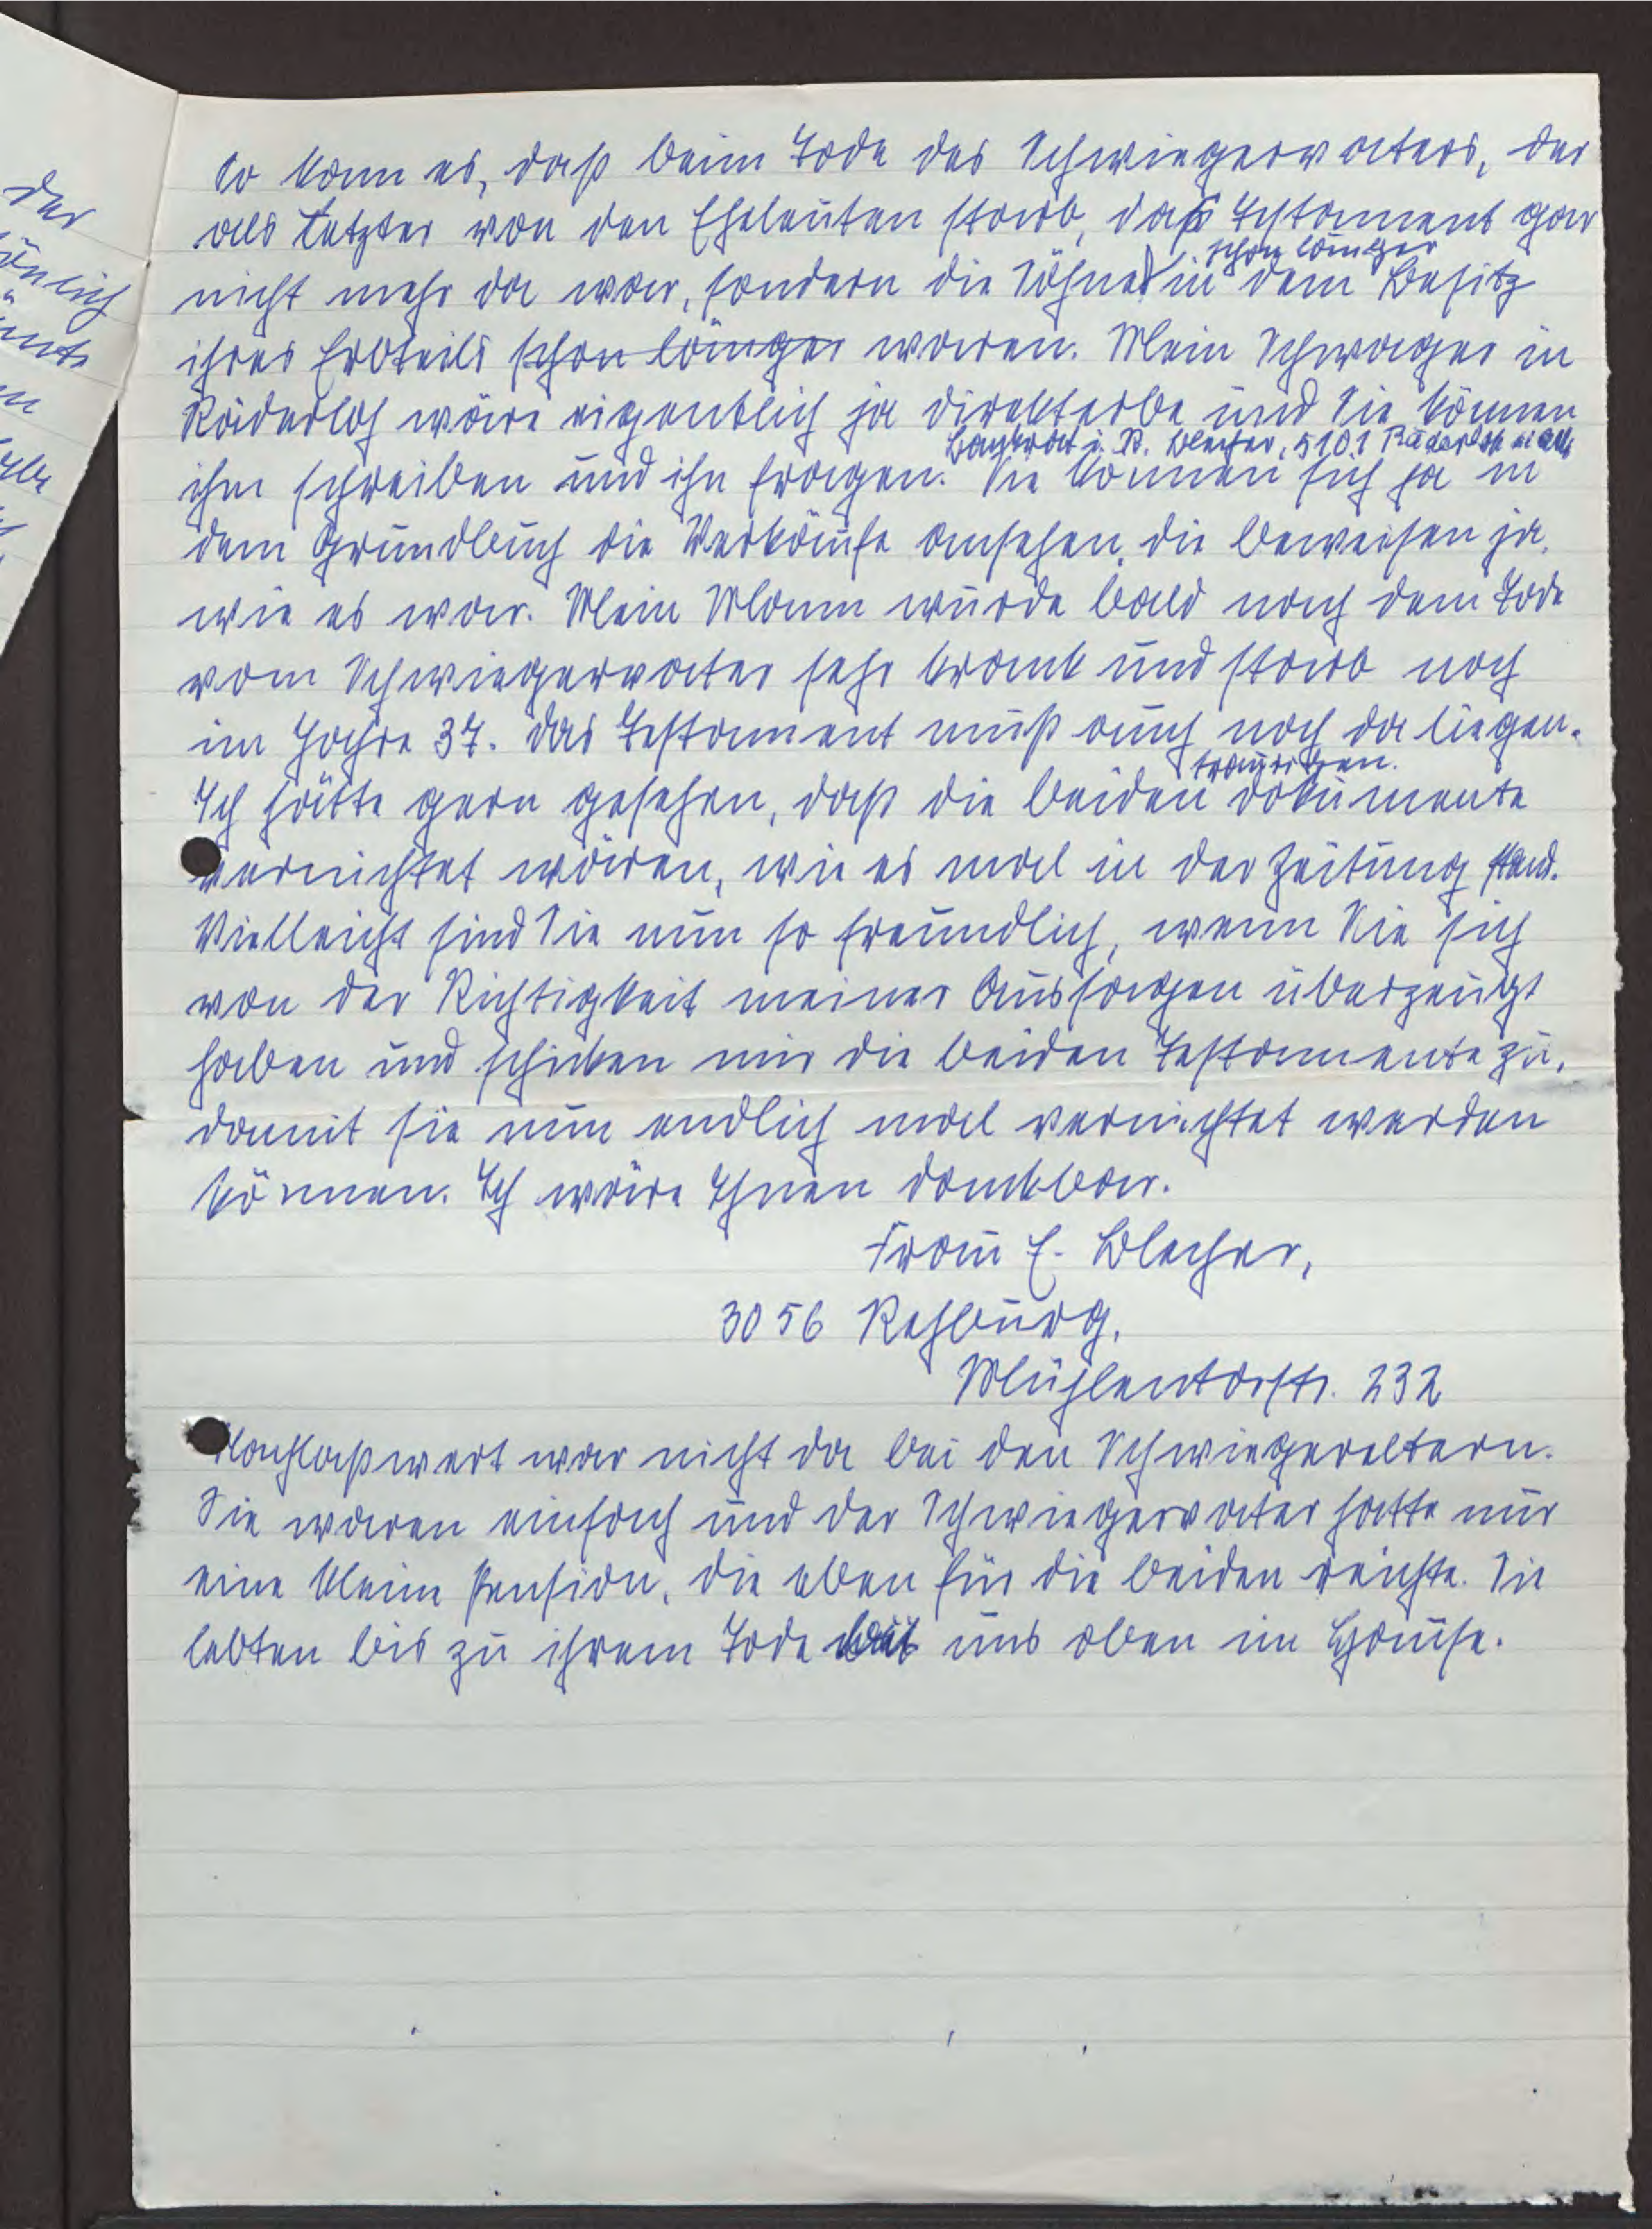 der
So kam es, daß beim Tode des Schwiegervaters, der
als Letzter von den Eheleuten starb, das Testament gar
schon länger
nicht mehr da war, sondern die Söhne in dem Besitz
ihres Erbteils schon länger waren. Mein Schwager in
Räderloh wäre eigentlich ja direkterbe und Sie können
Baurat i. R. Blecher, 3101 Räderloh
ihm schreiben und ihn fragen. Sie können sich ja in
dem Grundbuch die Verkäufe ansehen, die beweisen ja,
wie es war. Mein Mann wurde bald nach dem Tode
vom Schwiegervater sehr krank und starb noch
im Jahre 37. Das Testament muß auch noch da liegen.
traurigen
Ich hätte gern gesehen, daß die beiden dokumente
vernichtet wären, wie es mal in der Zeitung stand.
Vielleicht sind Sie nun so freundlich, wenn Sie sich
von der Richtigkeit meiner Aussagen überzeugt
haben und schicken mir die beiden Testamente zu,
damit sie nun endlich mal vernichtet werden
können. Ich wäre Ihnen dankbar.
Frau E. Blecher,
3056 Rehburg,
Mühlentorstr. 232
Nachlaßwert war nicht da bei den Schwiegereltern.
Sie waren einfach und der Schwiegervater hatte nur
eine kleine Pension, die eben für die beiden reichte. Sie
lebten bis zu ihrem Tode bei uns oben im Hause.